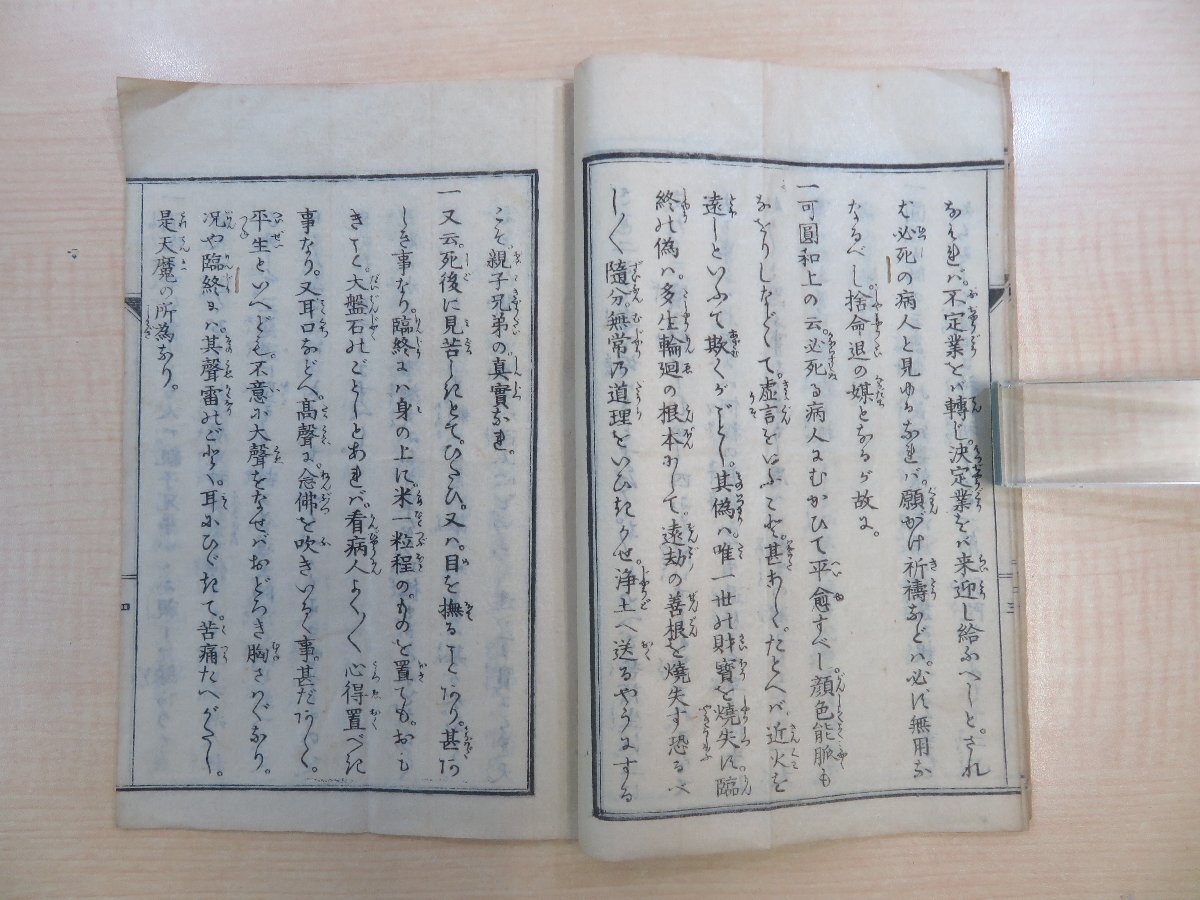 なれバ。不定業をバ轉じ。決定業をバ来迎し給ふべしと。され
ば必死の病人と見ゆるなれバ。願がけ祈禱などハ。必ず無用な
るべし。捨命退の媒となるが故に。
一可圓和上の云。必死る病人にむかひて平愈すべし。顔色能脈も
なをりしなどゝて。虚言をいふこと。甚あしく。たとへバ。近火を
遠しといふて欺くがごとし。其偽ハ。唯一世の財寳を燒失す。臨
終の偽ハ。多生輪廻の根本にして。遠劫の善根を燒失す恐るべ
しく随分。無常の道理をいひきかせ。浄土へ送るやうにする
こそ。親子兄弟の真實なれ。
一又云。死後に見苦しきとて。ひたひ。又ハ。目を撫ることあり。甚あ
しき事なり。臨終にハ身の上に。米一粒程の。ものを置ても。おも
きこと。大盤石のごとしとあれバ。看病人よく〱心得置べき
事なり。又耳口などへ。髙聲に。念佛を吹きいるゝ事。甚だあしく。
平生といへども。不意に大聲をなせバおどろき胸さわぐなり。
况や臨終にハ。其聲雷のごとく。耳にひゞきて。苦痛たへがたし。
是天魔の所為なり。